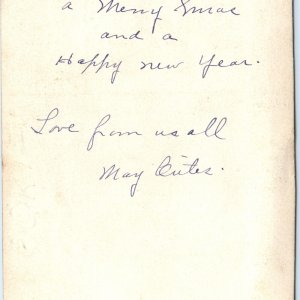 a Merry Xmas
and a
Happy new Year.
Love from us all
May